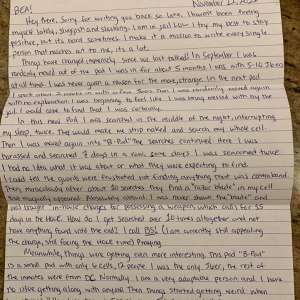 November 12,
Hey there. Sorry for writing you back so late, I haven't been feeling
myself lately, sluggish and slacking. I am in jail lol- I try my best to stay
positive, but its hard sometimes. I make it a mission to write every single
person that reaches out to me, its a lot.
Things have changed immensely since we last talked! In September I was
randomly moved out of the pod I was in for about 5 months. I was with
still there. I was never given a reason for the move, strange. In the next pod
I spent about
with no explanation. I was beginning to feel like I was being messed with by the
jail. I would come to find that I was certainly.
In this new Pod I was searched in the middle of the night, interrupting
my sleep, twice. They would make me strip naked and search my whole cell.
Then I was moved again into "B-Pod" The searches continued. Here I was
harassed and searched 9 days in a row, some days I was searched twice.
I had no idea what it was about or what they were expecting to find.
I could tell the guards were frustrated not finding anything that was contraband.
Then, miraculously after about 30 searches they find a "razor blade" in my cell
that magically appeared. Moreover, I was never shown the "blade" and
was brought in-house charges for possessing a weapon which calls for 35
days in the Hole. How do I get searched over 10 times altogether and not
have anything found until the end? I call BS! (I am currently still appealing
the charge, still facing the Hole time) Praying.
Meanwhile, things were getting even more interesting. This pod "B-Pod"
is a small pod with only 6 cells, 12 people. I was the only J6er, the rest of
the inmates were from DC. Normally, I am a very adaptable person and I have
no issue getting along with anyone. Then things started getting weird. When